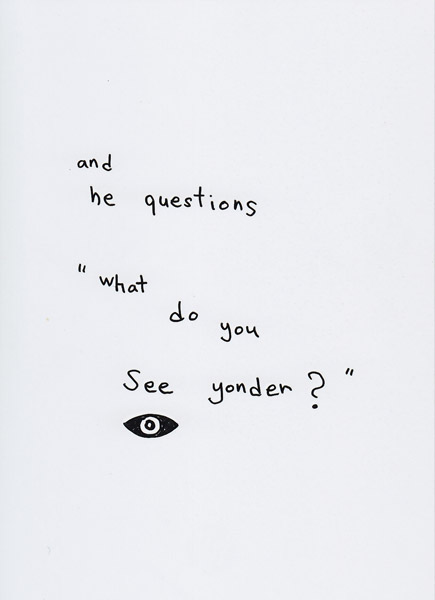 and
he questions
"what
do you
See yonder?"